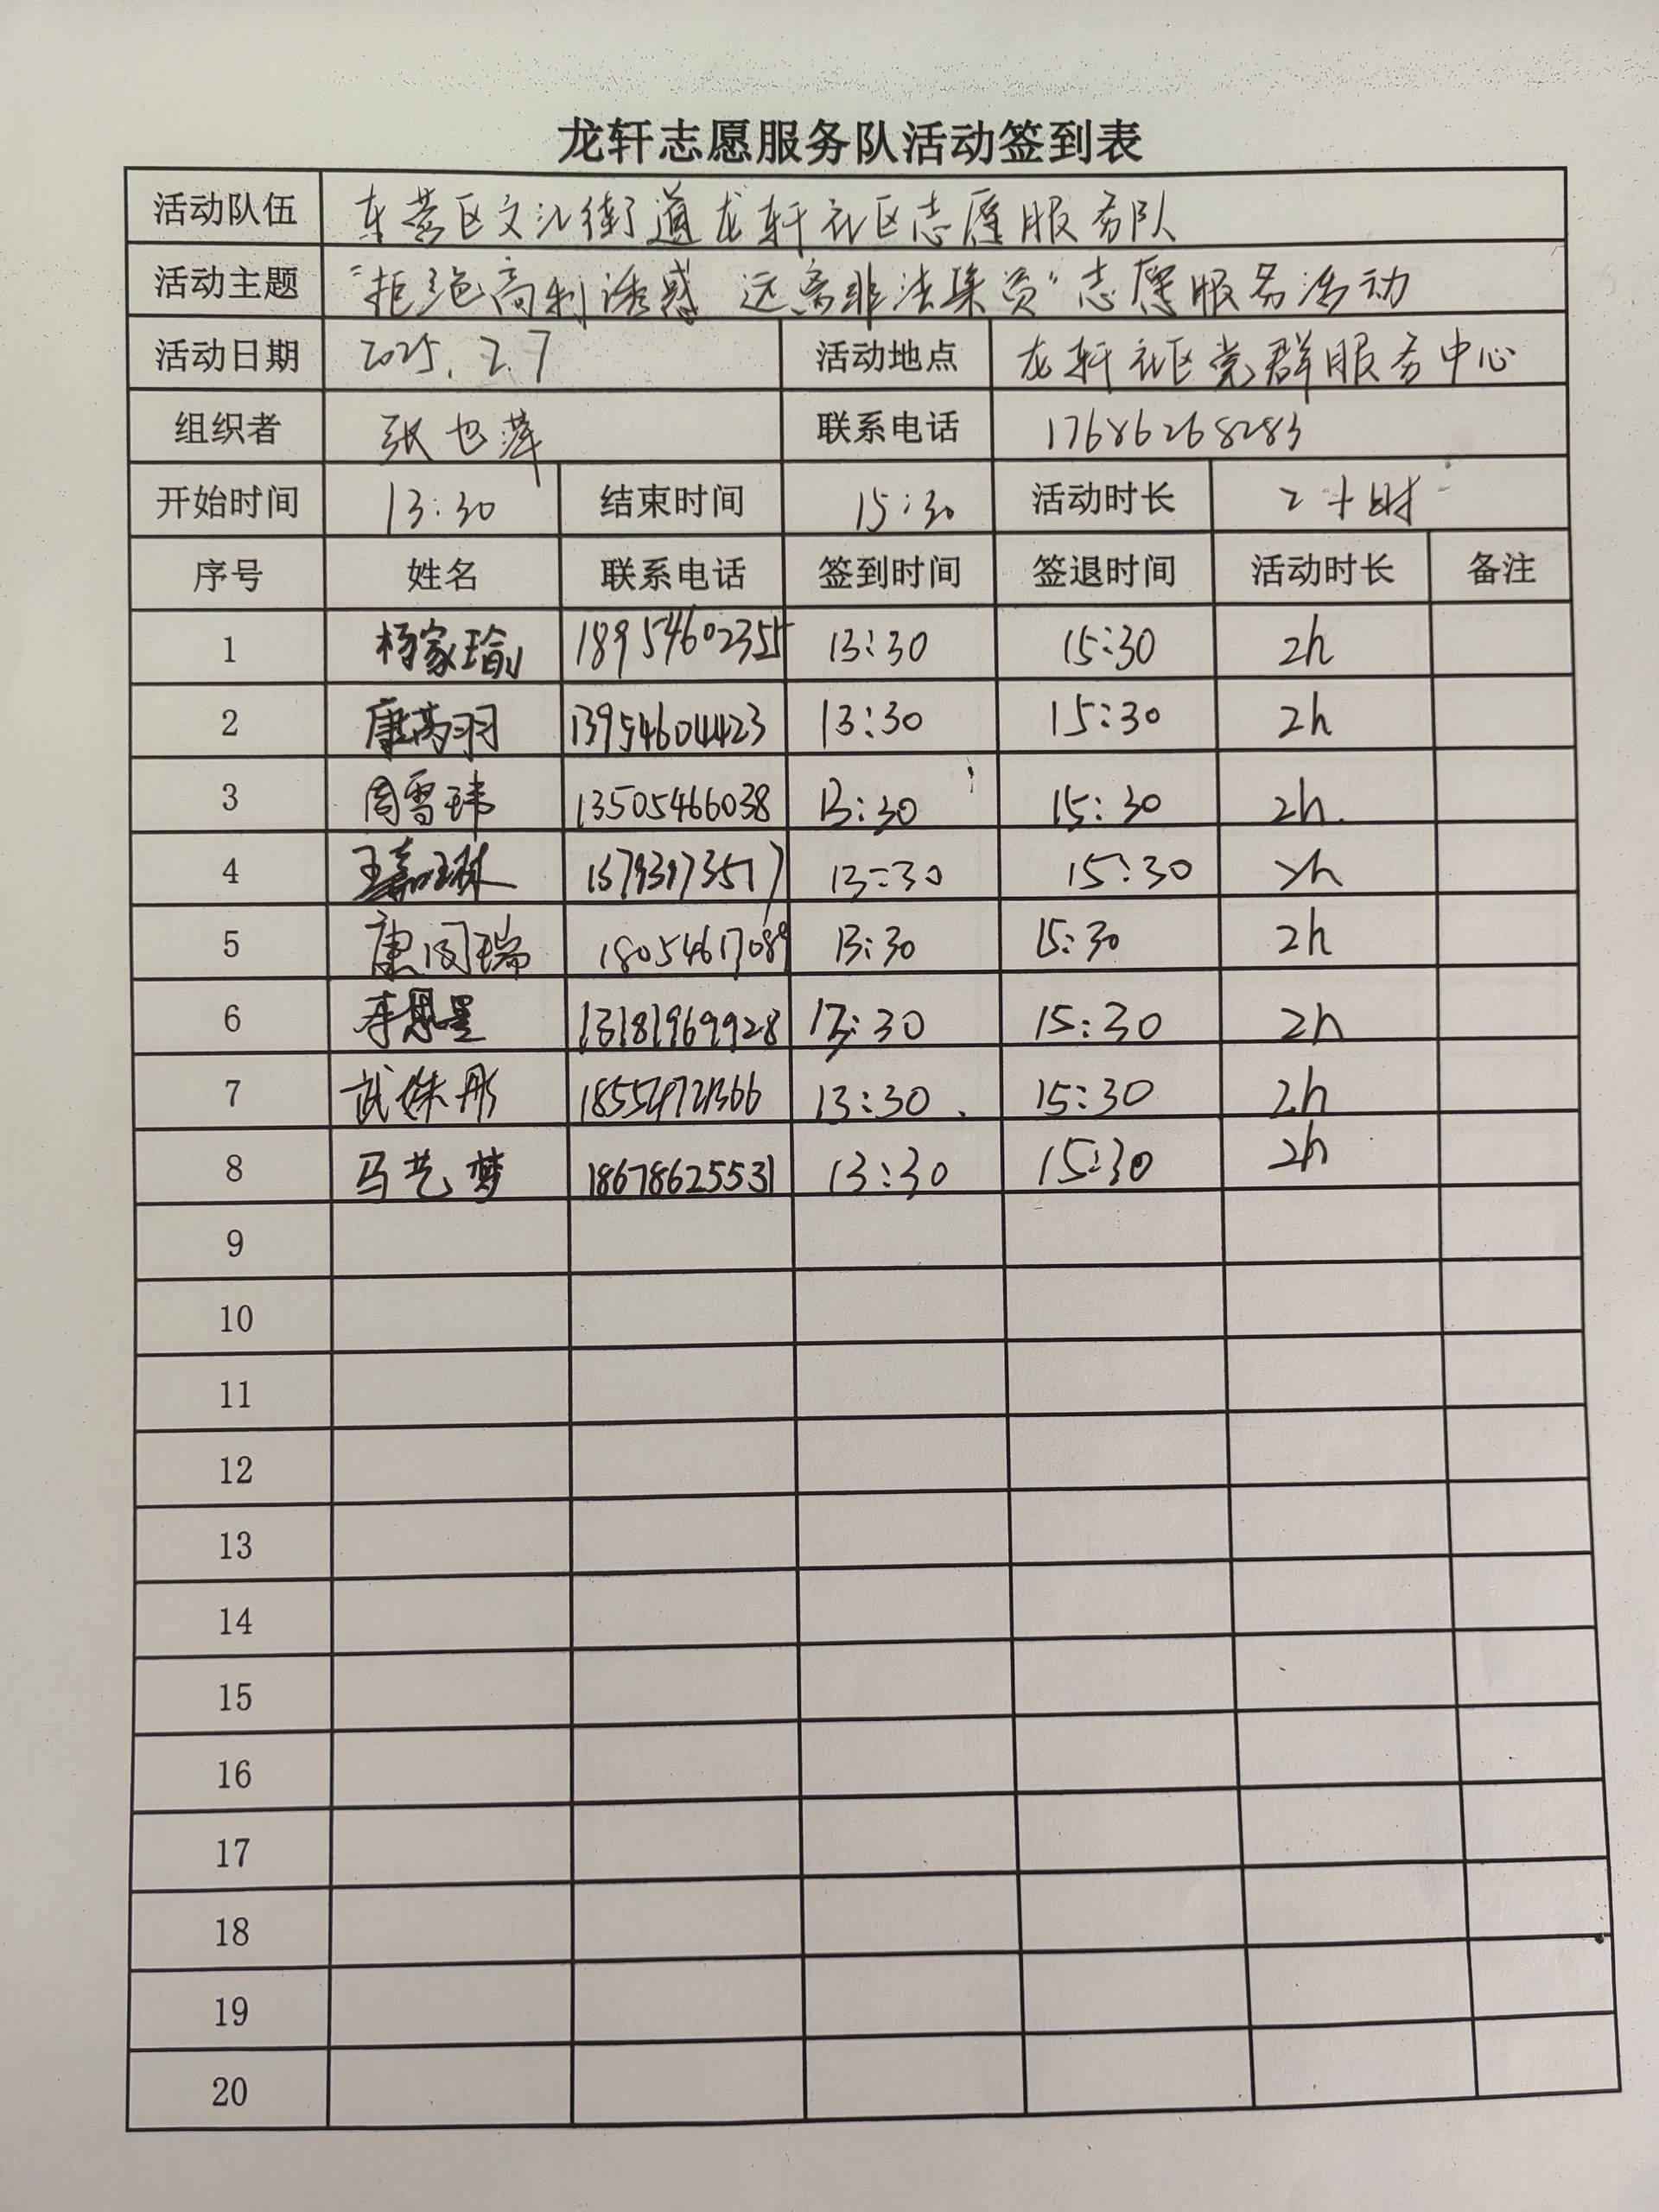 龙轩志愿服务队活动签到表
活动队伍 东营区文汇街道龙轩社区志愿服务队
活动主题 "拒绝高利诱惑 远离非法集资"志愿服务活动
活动日期 2025.2.7 活动地点 龙轩社区党群服务中心
组织者 张也萍 联系电话 17686268283
开始时间 13:30 结束时间 15:30 活动时长 2小时
序号 姓名 联系电话 签到时间 签退时间 活动时长 备注
1 杨家瑜 18954602355 13:30 15:30 2h
2 康芮羽 13954604423 13:30 15:30 2h
3 周雪玮 13505466038 13:30 15:30 2h.
4 王嘉琳 13:30 15:30 2h
5 唐闵瑞 18054617089 13:30 15:30 2h
6 李思墨 13181969928 13:30 15:30 2h
7 武姝彤 13:30 15:30 2h
8 马艺梦 18678625531 13:30 15:30 2h
9
10
11
12
13
14
15
16
17
18
19
20